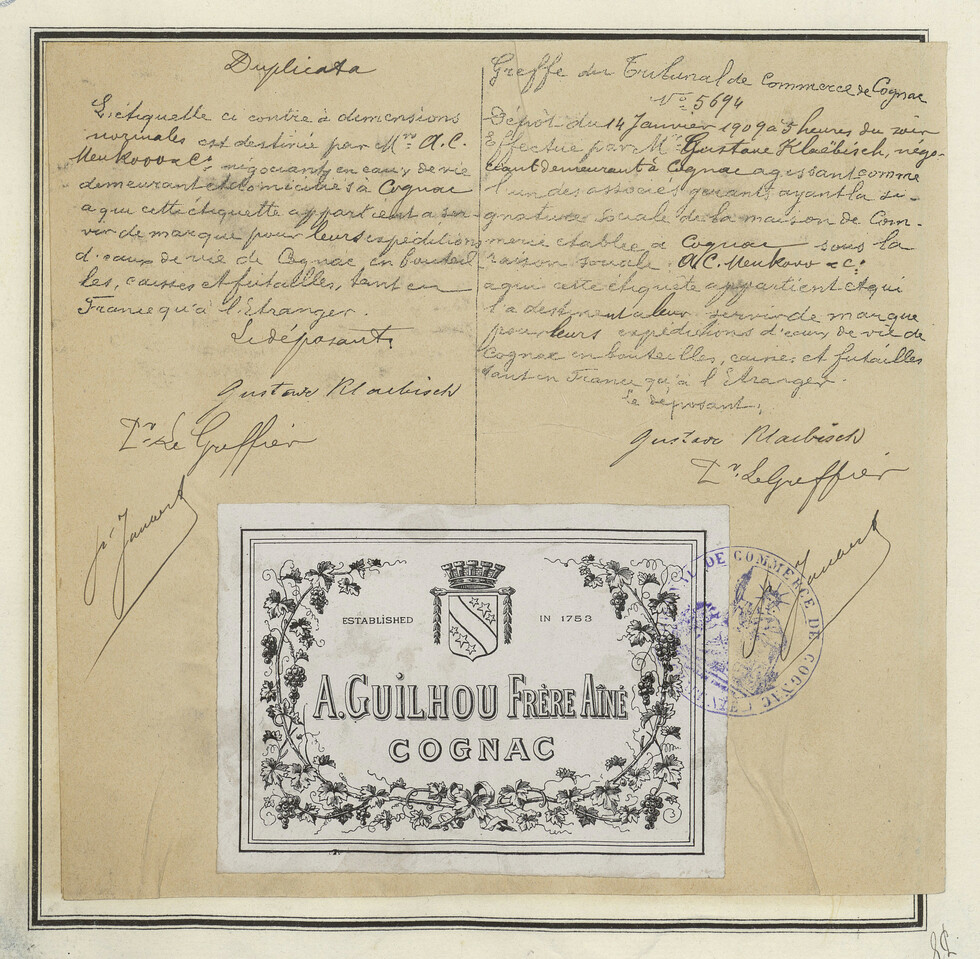 Duplicata
L'étiquette ci contre à dimensions
normales est destinée par Mrs A. C.
Meukovo & Co négociants en eaux de vie
demeurant et domiciliés à Cognac
a qui cette étiquette appartient a ser-
vir de marque pour leurs expéditions
d'eaux de vie de Cognac en bouteil
les, caisses et futailles, tant en
France qu'à l'Etranger.
Le déposant,
Gustave Klaebisch
Pr Le Greffier
Greffe du Tribunal de Commerce de Cognac
No 5694
Dépôt du 14 Janvier 1909 à 5 heures du soir
Effectué par Mr Gustave Klaëbisch, négo-
ciant demeurant à Cognac agissant comme
l'un des associés gérants ayant la si-
gnature sociale de la maison de Com-
merce établie à Cognac sous la
raison sociale A. C. Meukovo & Co
a qui cette étiquette appartient et qui
l'a destinent a leur servir de marque
pour leurs expéditions d'eaux de vie de
Cognac en bouteilles, caisses et futailles
tant en France qu'à l'Etranger.
Le déposant,
Gustave Klaebisch
Pr. Le Greffier
ESTABLISHED IN 1753
A. GUILHOU FRÈRE AÎNÉ
COGNAC
3
DE COMMERCE DE COGNAC